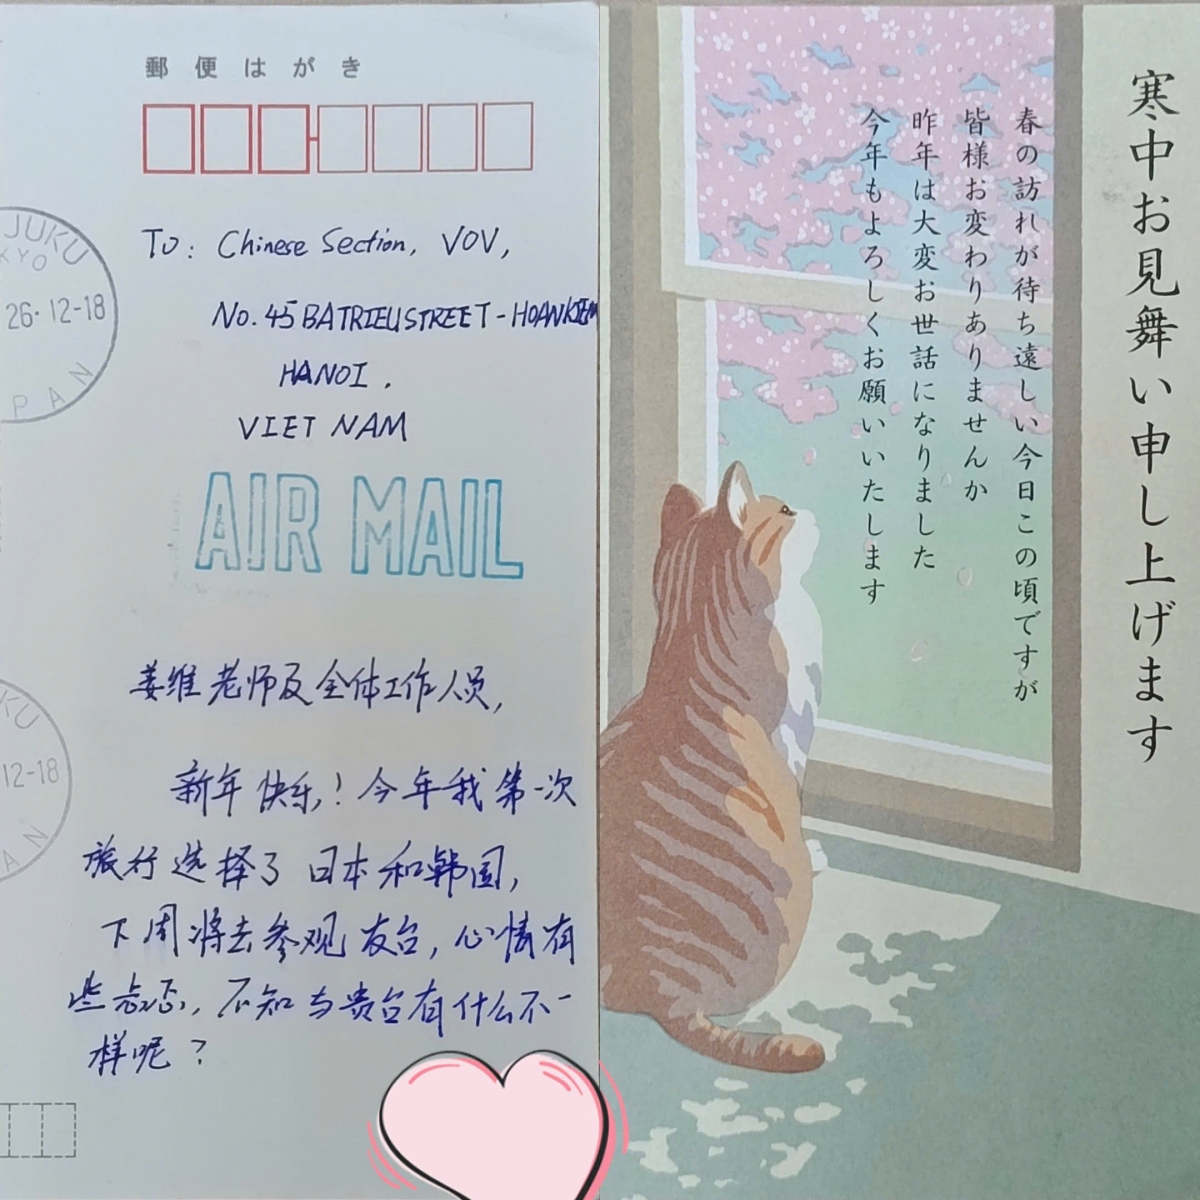 郵便はがき
JUKU
KYO
26.12-18
PAN
To: Chinese Section, VOV,
No.45 BATRIEU STREET-HOANKIEM
HANOI.
VIET NAM
AIR MAIL
姜维老师及全体工作人员,
新年快乐!今年我第一次
旅行选择了日本和韩国,
下周将去参观友台,心情有
些忐忑,不知与贵台有什么不一
样呢?
KU
12-18
AN
寒中お見舞い申し上げます
春の訪れが待ち遠しい今日この頃ですが
皆様お変わりありませんか
昨年は大変お世話になりました
今年もよろしくお願いいたします